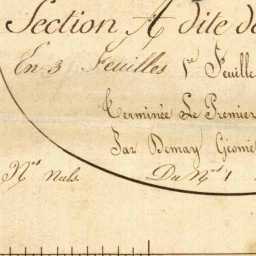 Section A dite d
En 3 Feuilles 1re Feuille
Terminée Le Premier
Par Demay Géomè
Nos nuls. Du No 1